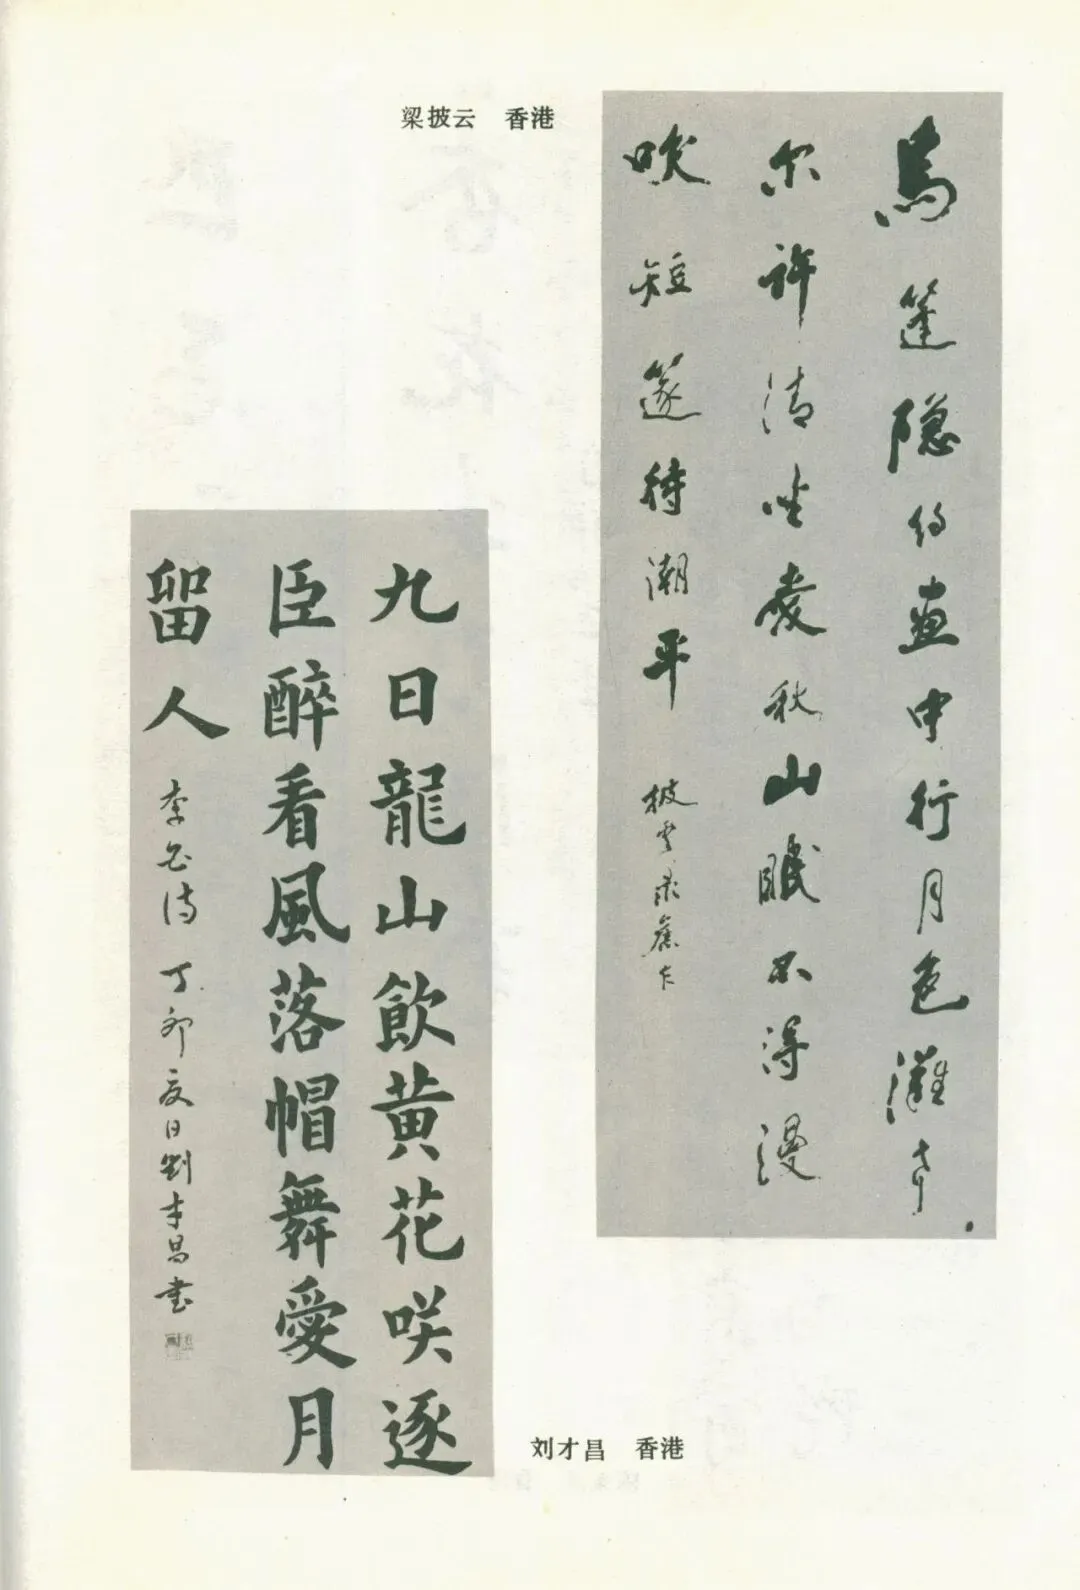 梁披云 香港
烏篷隱約畫中行月色灘声
尔許清坐愛秋山眠不得漫
吹短篴待潮平 披雲录舊作
九日龍山飲黄花咲逐
臣醉看風落帽舞愛月
畱人 李白詩 丁卯夏日劉才昌書
刘才昌 香港